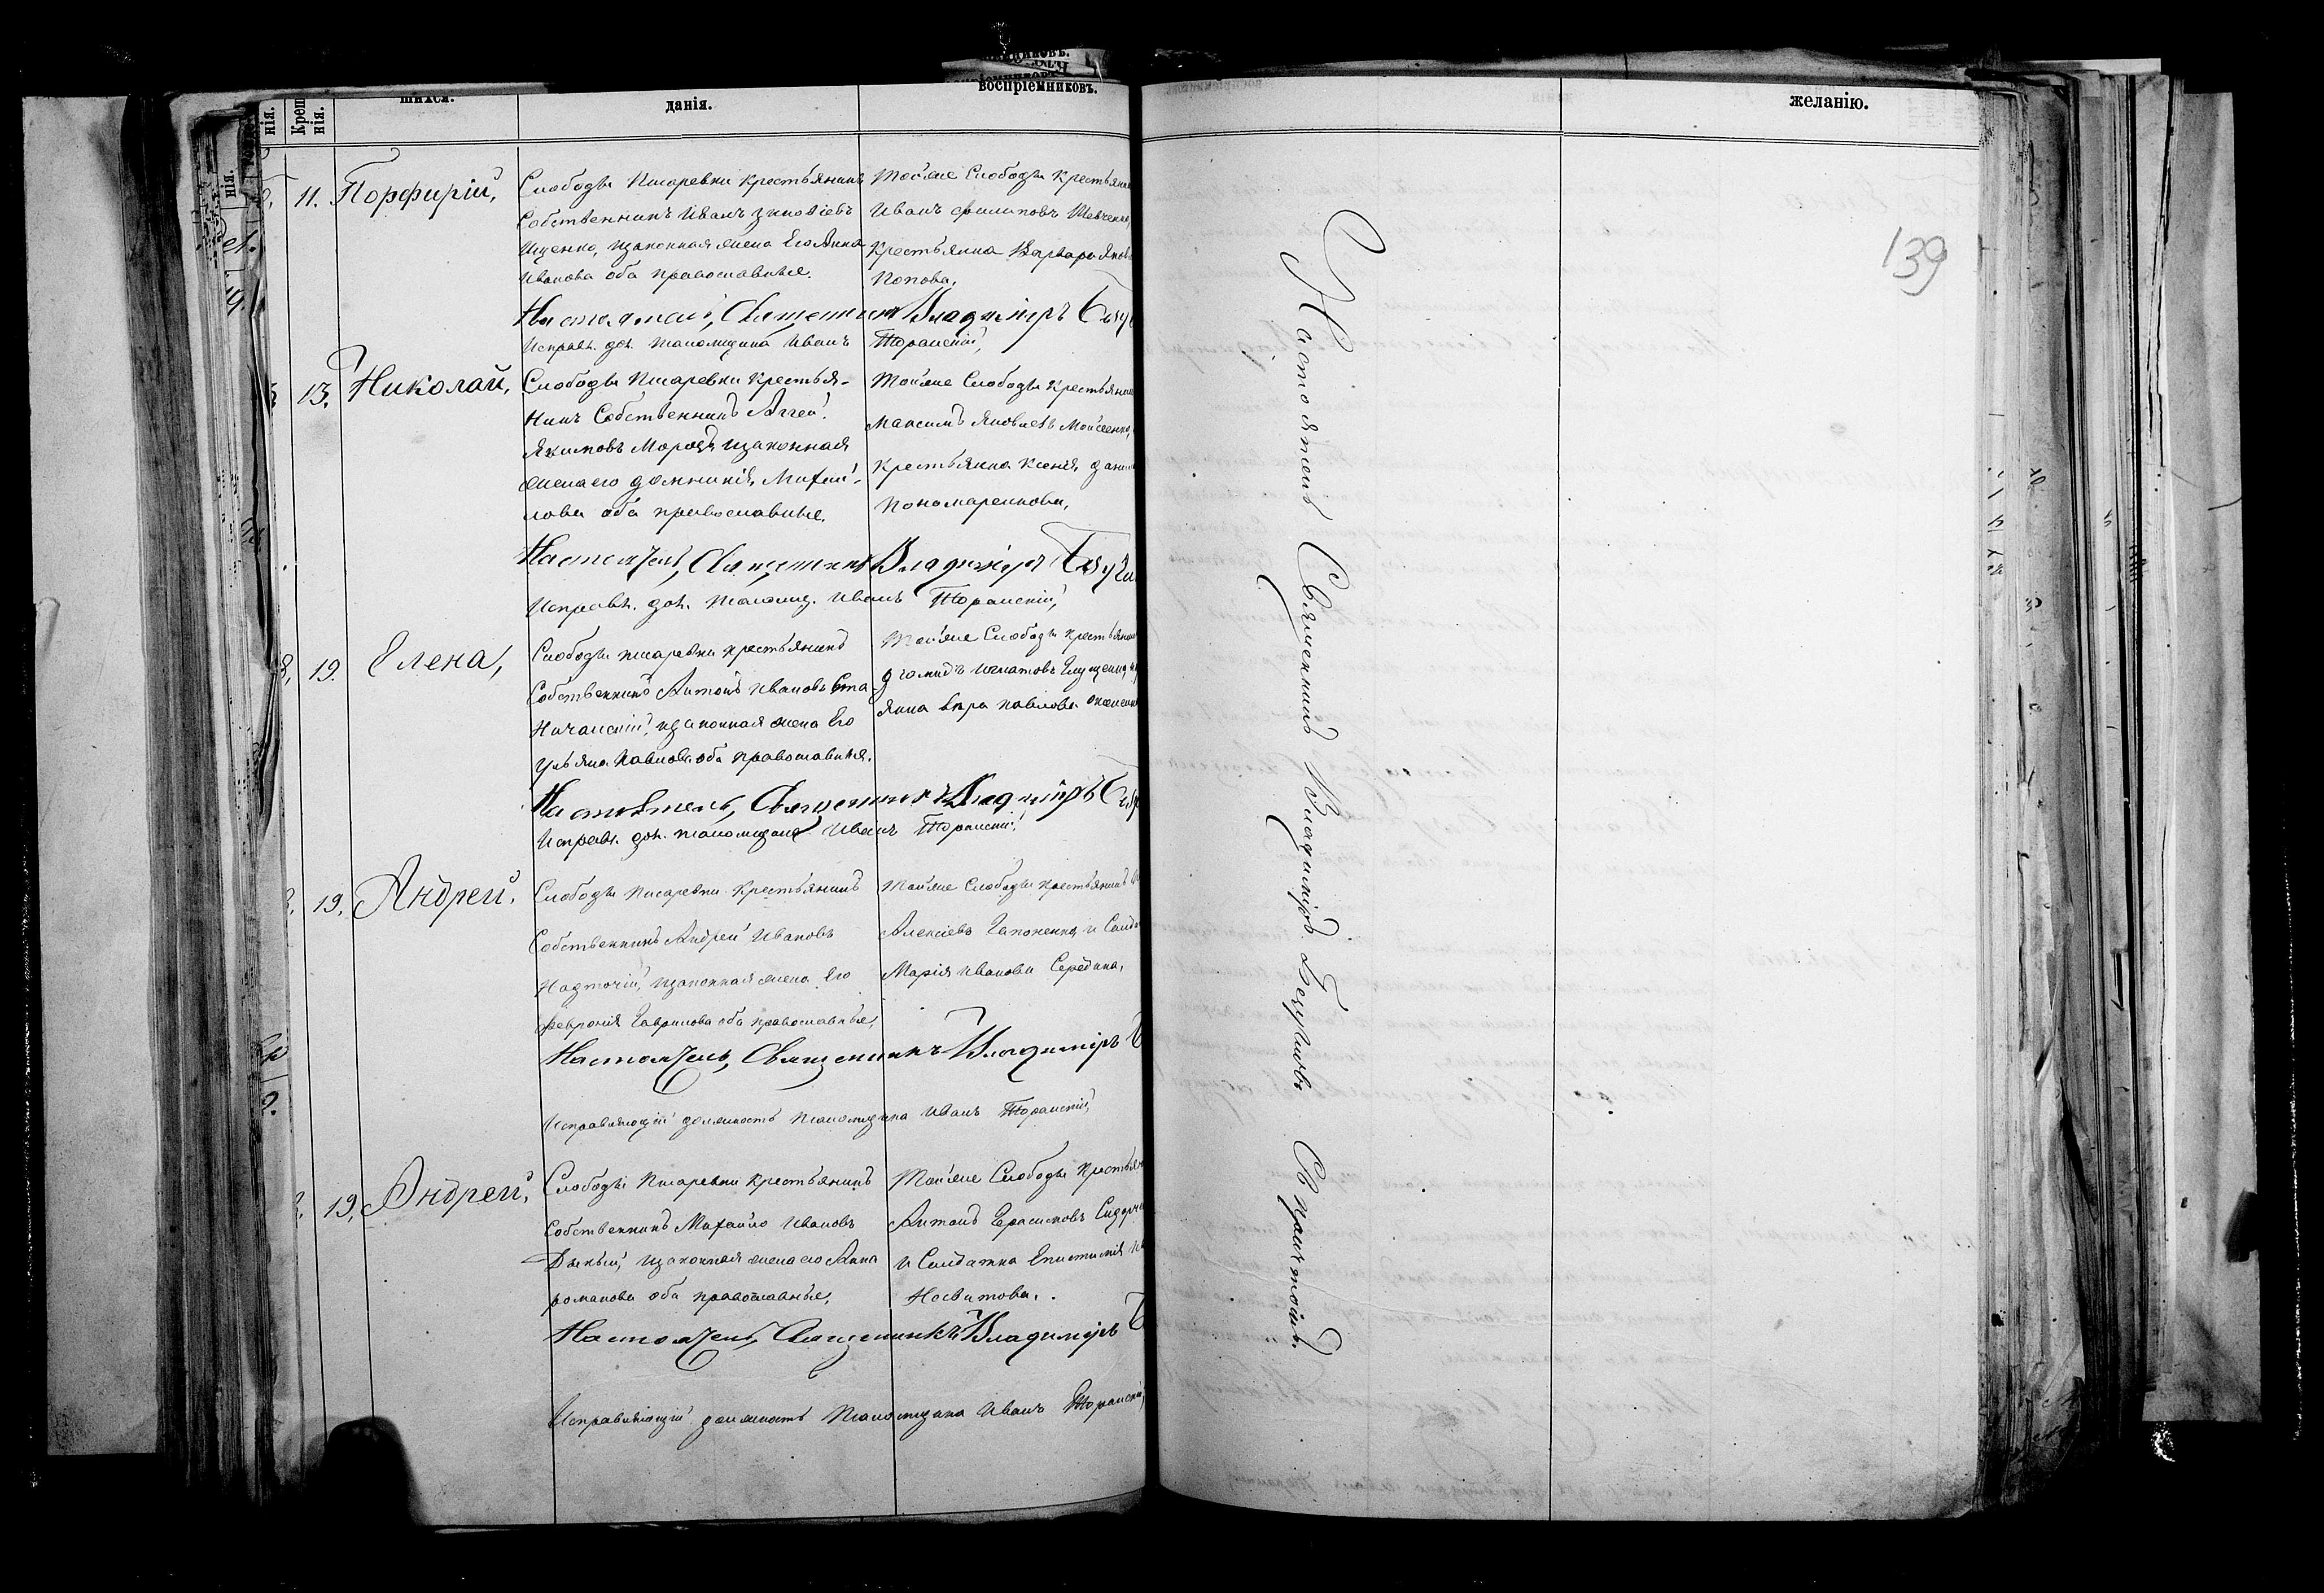 нія.
Креще
нія.
шихся.
данія.
воспріемниковъ.
11. Порфирій,
Слободы Писаревки крестьянинъ
Собственникъ Иванъ Зиновіевъ
Ищенко, и законная жена Его Анна
Иванова оба православные.
Тойже Слободы крестьянин
Иванъ Филиповъ Шевченко,
крестьянка Варвара Яков
Попова,
Настоятель, Священник Владиміръ
Исправл. дол. Псаломщика Иванъ Торанскій,
13. Николай,
Слободы Писаревки крестья-
нинъ Собственникъ Аггей
Якимовъ Морозъ и законная
жена его Домникія Михай-
лова оба православные.
Тойже Слободы крестьянин
Максимъ Яковлевъ Мойсеенко,
крестьянка Ксенія Дани
Пономаренкова,
Настоятель, Священникъ Владиміръ
Исправл. дол. Псаломщ. Иванъ Торанскій,
19. Елена,
Слободы Писаревки крестьянинъ
Собственникъ Антонъ Ивановъ Ста
ничанскій, и законная жена Его
Ульяна Павлова оба православныя.
Тойже Слободы крестьянин
Діомидъ Игнатовъ
янка Вера Павлова
Настоятель, Священникъ Владиміръ
Исправл. дол. псаломщика Иванъ Торанскій,
19. Андрей,
Слободы Писаревки Крестьянинъ
Собственникъ Андрей Ивановъ
Надточій, и законная жена Его
Феврония Гаврилова оба православные,
Тойже Слободы крестьянинъ
Алексіевъ Гапоненко, и Солда
Марія Иванова Середина,
Настоятель, Священникъ Владиміръ
Исправляющій должность Псаломщика Иванъ Торанскій,
19. Андрей,
Слободы Писаревки крестьянинъ
Собственникъ Михайло Ивановъ
Дикый, и законная жена его Анна
Романова оба православные,
Тойже Слободы Крестьян
Антонъ Герасимовъ
и Солдатка Епистимія
Носвитова.
Настоятель, Священникъ Владиміръ
Исправляющій должность Псаломщика Иванъ Торанскій,
желанію.
139
Настоятель Священникъ Владиміръ Безугловъ Съ причтомъ.